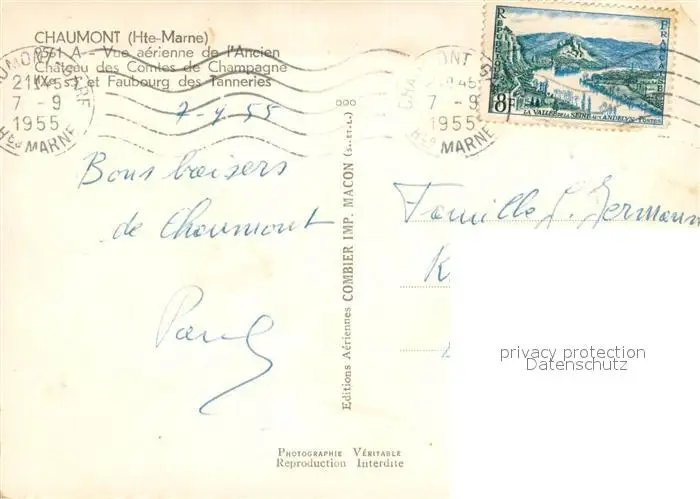 CHAUMONT (Hte-Marne)
9561 A - Vue aérienne de l'Ancien
Château des Comtes de Champagne
(IXe s.) et Faubourg des Tanneries
CHAUMONT
21H45
7 - 9
1955
Hte MARNE
7 - 9
1955
Hte MARNE
REPUBLIQUE FRANCAISE
8F
LA VALLEE DE LA SEINE AUX ANDELYS POSTES
7-9 55
Bons baisers
de Chaumont
Paul
Editions Aériennes COMBIER IMP. MACON (S.-ET-L.)
Famille
privacy protection
Datenschutz
PHOTOGRAPHIE VÉRITABLE
Reproduction Interdite